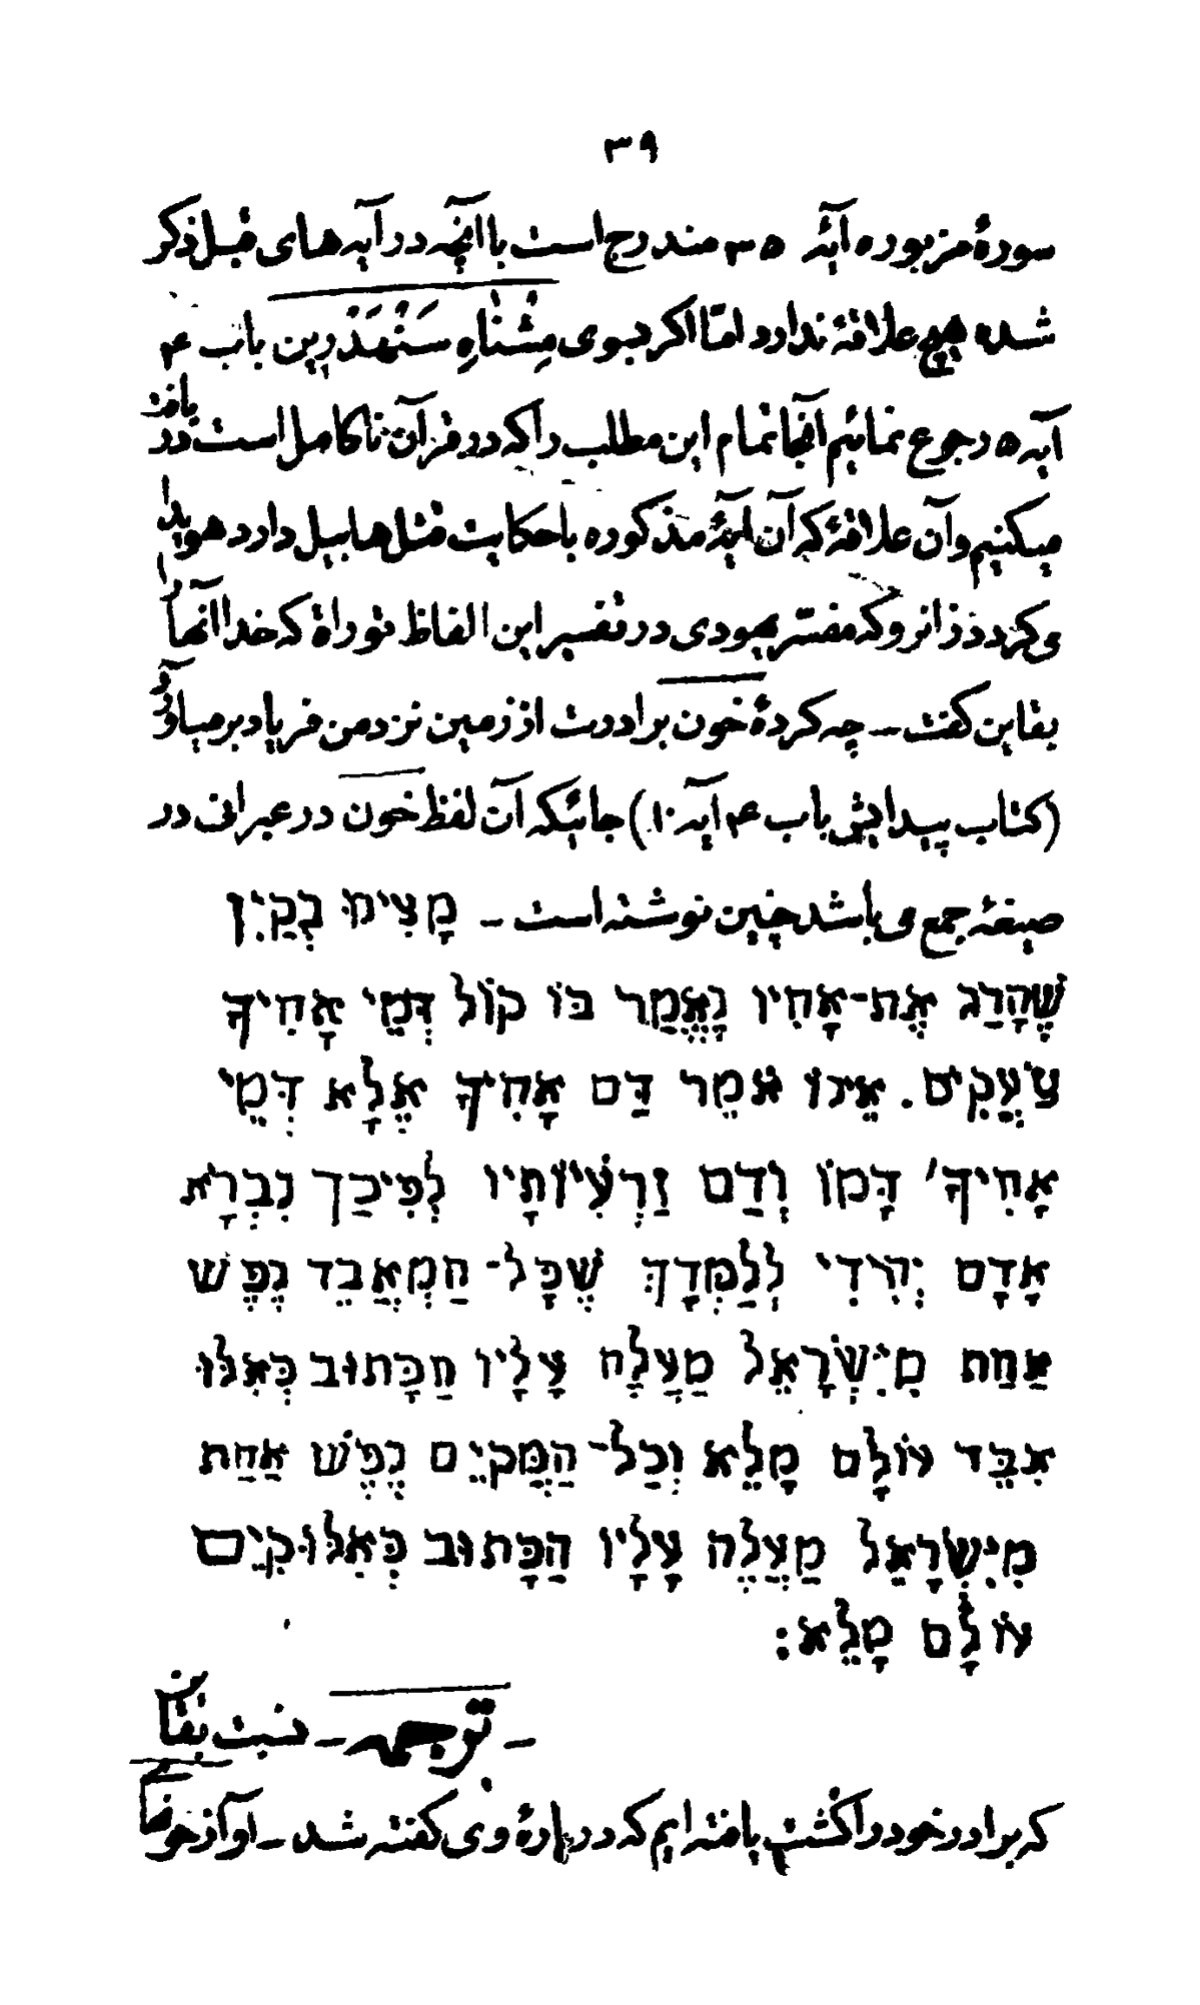 ۳۹
سورهٔ مزبوره آیهٔ ۳۵ مندرج است با آنچه در آیه های قبل ذکر
شده هیچ علاقهٔ ندارد امّا اکر بسوی مِشْناهِ سَنْهَدْرِین باب ۴
آیه ۵ رجوع نمائیم آنجا تمام این مطلب را که در قرآن ناکامل است در یافت
میکنیم و آن علاقهٔ که آن آیهٔ مذکوره با حکایت قتل هابیل دارد هویدا
می کردد زانرو که مفسّر یهودی در تفسیر این الفاظ توراة که خدا آنها را
بقاین کفت ــ چه کردهٔ خون برادرت از زمین نزد من فریاد بر میاورد
(کتاب پیدایش باب ۴ آیه ۱۰) جائیکه آن لفظ خون در عبرانی در
صیغهٔ جمع می باشد چنین نوشته است ــ מָצִינוּ בְקַיִן
שֶׁהָרַג אֶת־אָחִיו נֶאֱמַר בּוֹ קוֹל דְּמֵי אָחִיךָ
צֹעֲקִים. אֵינוֹ אֹמֵר דַּם אָחִיךָ אֶלָּא דְּמֵי
אָחִיךָ׳ דָּמוֹ וְדַם זַרְעִיוֹתָיו לְפִיכַךְ נִבְרָא
אָדָם יְהִידִי לְלַמְּדָךְ שֶׁכָּל־הַמְאַבֵּד נֶפֶשׁ
אַחַת מִיִּשְׂרָאֵל מַעֲלֶה עָלָיו הַכָּתוּב כְּאִלּוּ
אִבֵּד עוֹלָם מָלֵא וְכַל־הַמֲּקַיֵּם נֶפֶשׁ אַחַת
מִיִּשְׂרָאֵל מַעֲלֶה עָלָיו הַכָּתוּב כְּאִלּוּקִיֵּם
עוֹלָם מָלֵא:
ــ توجمه ــ نسبت بقائن
که برادر خود را کشت یافته ایم که در بارهٔ وی کفته شد ــ آواز خونهای